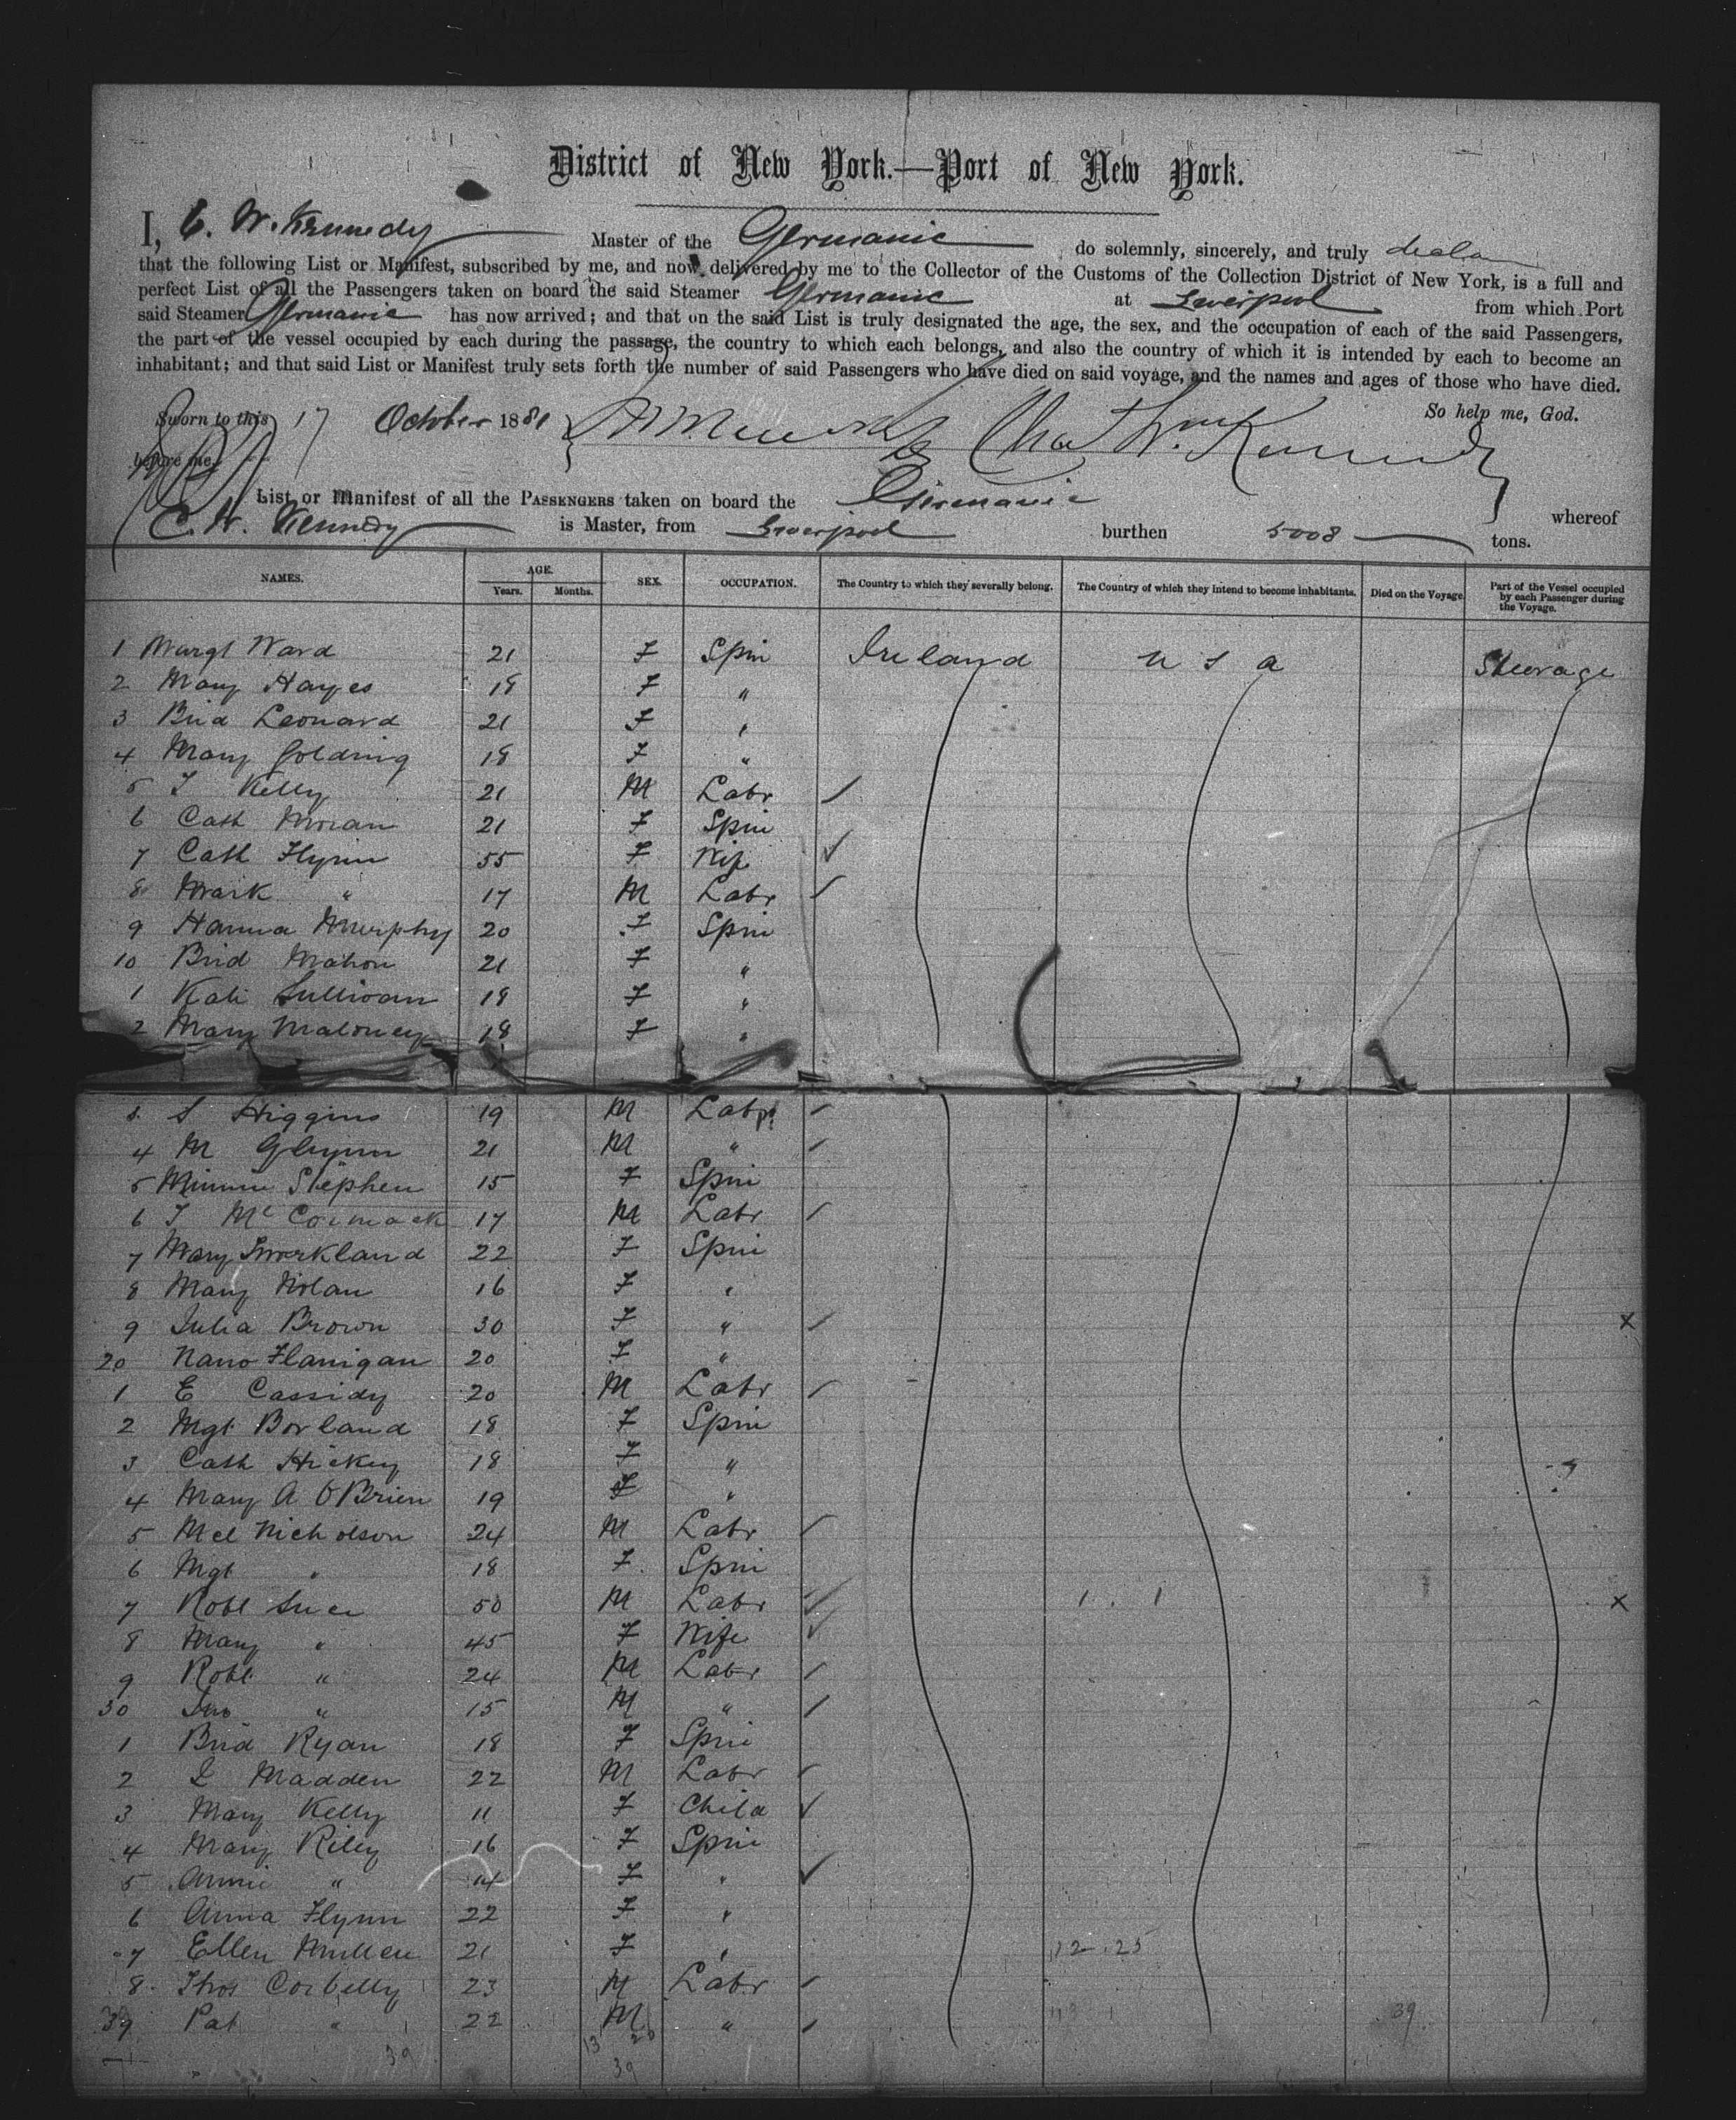 District of New York.—Port of New York.
I, C. W. Kennedy Master of the Germanic do solemnly, sincerely, and truly
that the following List or Manifest, subscribed by me, and now delivered by me to the Collector of the Customs of the Collection District of New York, is a full and
perfect List of all the Passengers taken on board the said Steamer Germanic at Liverpool from which Port
said Steamer Germanic has now arrived; and that on the said List is truly designated the age, the sex, and the occupation of each of the said Passengers,
the part of the vessel occupied by each during the passage, the country to which each belongs, and also the country of which it is intended by each to become an
inhabitant; and that said List or Manifest truly sets forth the number of said Passengers who have died on said voyage, and the names and ages of those who have died.
So help me, God.
Sworn to this 17 October 1881
before me,
List or Manifest of all the PASSENGERS taken on board the Germanic whereof
C. W. Kennedy is Master, from Liverpool burthen 5008 tons.
NAMES. AGE. Years. Months. SEX. OCCUPATION. The Country to which they severally belong. The Country of which they intend to become inhabitants. Died on the Voyage. Part of the Vessel occupied by each Passenger during the Voyage.
1 Margt Ward 21 F Spin Ireland U S A Steerage
2 Mary Hayes 18 F "
3 Brid Leonard 21 F "
4 Mary Golding 18 F "
5 T Kelly 21 M Labr
6 Cath Moran 21 F Spin
7 Cath Flynn 55 F Wife
8 Mark " 17 M Labr
9 Hanna Murphy 20 F Spin
10 Brid Mahon 21 F "
1 Kate Sullivan 18 F "
2 Mary Maloney 18 F "
3 S Higgins 19 M Labr
4 M Glynn 21 M "
5 Minnie Stephen 15 F Spin
6 T McCormack 17 M Labr
7 Mary 22 F Spin
8 Mary Nolan 16 F "
9 Julia Brown 30 F " x
20 Nano Flanigan 20 F "
1 E Cassidy 20 M Labr
2 Mgt Borland 18 F Spin
3 Cath Hickey 18 F "
4 Mary A O'Brien 19 F "
5 Mcl Nicholson 24 M Labr
6 Mgt " 18 F Spin
7 Robt 50 M Labr x
8 Mary " 45 F Wife
9 Robt " 24 M Labr
30 Jno " 15 M "
1 Brid Ryan 18 F Spin
2 Madden 22 M Labr
3 Mary Kelly 11 F Child
4 Mary Riley 16 F Spin
5 Annie " 14 F "
6 Anna Flynn 22 F "
7 Ellen Mullen 21 F " 12.25
8 Thos Corbelly 23 M Labr
39 Pat " 22 M " 39
39 13 26
39